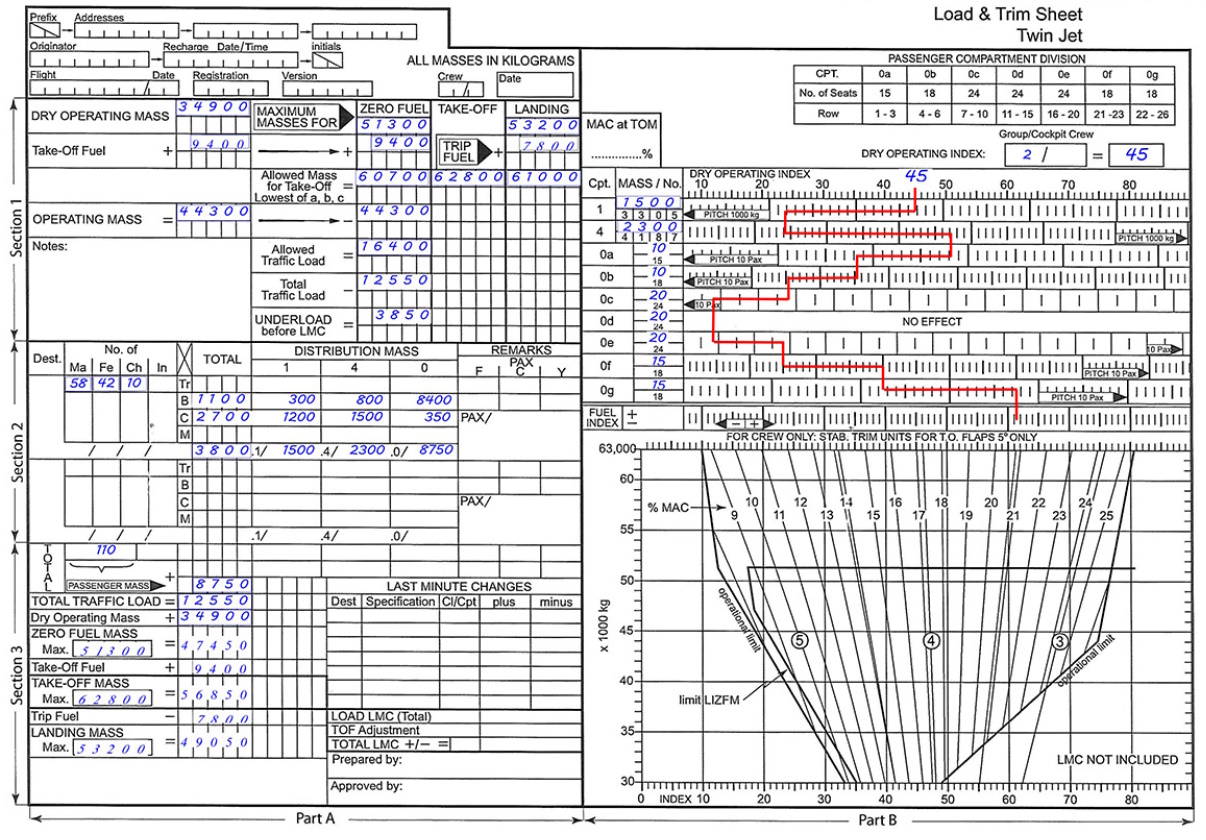 Load & Trim Sheet
Twin Jet
Prefix
Addresses
Originator
Recharge Date/Time
initials
ALL MASSES IN KILOGRAMS
Flight
Date
Registration
Version
Crew
Date
/
/
Section 1
DRY OPERATING MASS
34900
MAXIMUM MASSES FOR
ZERO FUEL
TAKE-OFF
LANDING
51300
53200
Take-Off Fuel
+
9400
+
9400
TRIP FUEL
+
7800
Allowed Mass
for Take-Off
Lowest of a, b, c
=
60700
62800
61000
OPERATING MASS
=
44300
−
44300
Notes:
Allowed
Traffic Load
=
16400
Total
Traffic Load
−
12550
UNDERLOAD
before LMC
=
3850
Section 2
Dest.
No. of
Ma Fe Ch In
TOTAL
DISTRIBUTION MASS
1 4 0
REMARKS
PAX
F C Y
58 42 10
Tr
B 1100 300 800 8400
C 2700 1200 1500 350 PAX/
M
/ / / 3800 .1/ 1500 .4/ 2300 .0/ 8750
Tr
B
C PAX/
M
/ / / .1/ .4/ .0/
Section 3
TOTAL
110
PASSENGER MASS
+
8750
TOTAL TRAFFIC LOAD = 12550
Dry Operating Mass + 34900
ZERO FUEL MASS
Max. 51300 = 47450
Take-Off Fuel + 9400
TAKE-OFF MASS
Max. 62800 = 56850
Trip Fuel − 7800
LANDING MASS
Max. 53200 = 49050
LAST MINUTE CHANGES
Dest Specification Cl/Cpt plus minus
LOAD LMC (Total)
TOF Adjustment
TOTAL LMC +/− =
Prepared by:
Approved by:
Part A
PASSENGER COMPARTMENT DIVISION
CPT. 0a 0b 0c 0d 0e 0f 0g
No. of Seats 15 18 24 24 24 18 18
Row 1 - 3 4 - 6 7 - 10 11 - 15 16 - 20 21 -23 22 - 26
MAC at TOM
..............%
Group/Cockpit Crew
DRY OPERATING INDEX: 2 / = 45
Cpt. MASS / No.
DRY OPERATING INDEX
45
10 20 30 40 50 60 70 80
1 1500 3305 PITCH 1000 kg
4 2300 4187 PITCH 1000 kg
0a 10 15 PITCH 10 Pax
0b 10 18 PITCH 10 Pax
0c 20 24 10 Pax
0d 20 24 NO EFFECT
0e 20 24 10 Pax
0f 15 18 PITCH 10 Pax
0g 15 18 PITCH 10 Pax
FUEL INDEX + − − +
FOR CREW ONLY: STAB. TRIM UNITS FOR T.O. FLAPS 5° ONLY
63,000
60
55
50
45
40
35
30
x 1000 kg
% MAC
9 10 11 12 13 14 15 16 17 18 19 20 21 22 23 24 25
5 4 3
operational limit
operational limit
limit LIZFM
LMC NOT INCLUDED
0 INDEX 10 20 30 40 50 60 70 80
Part B